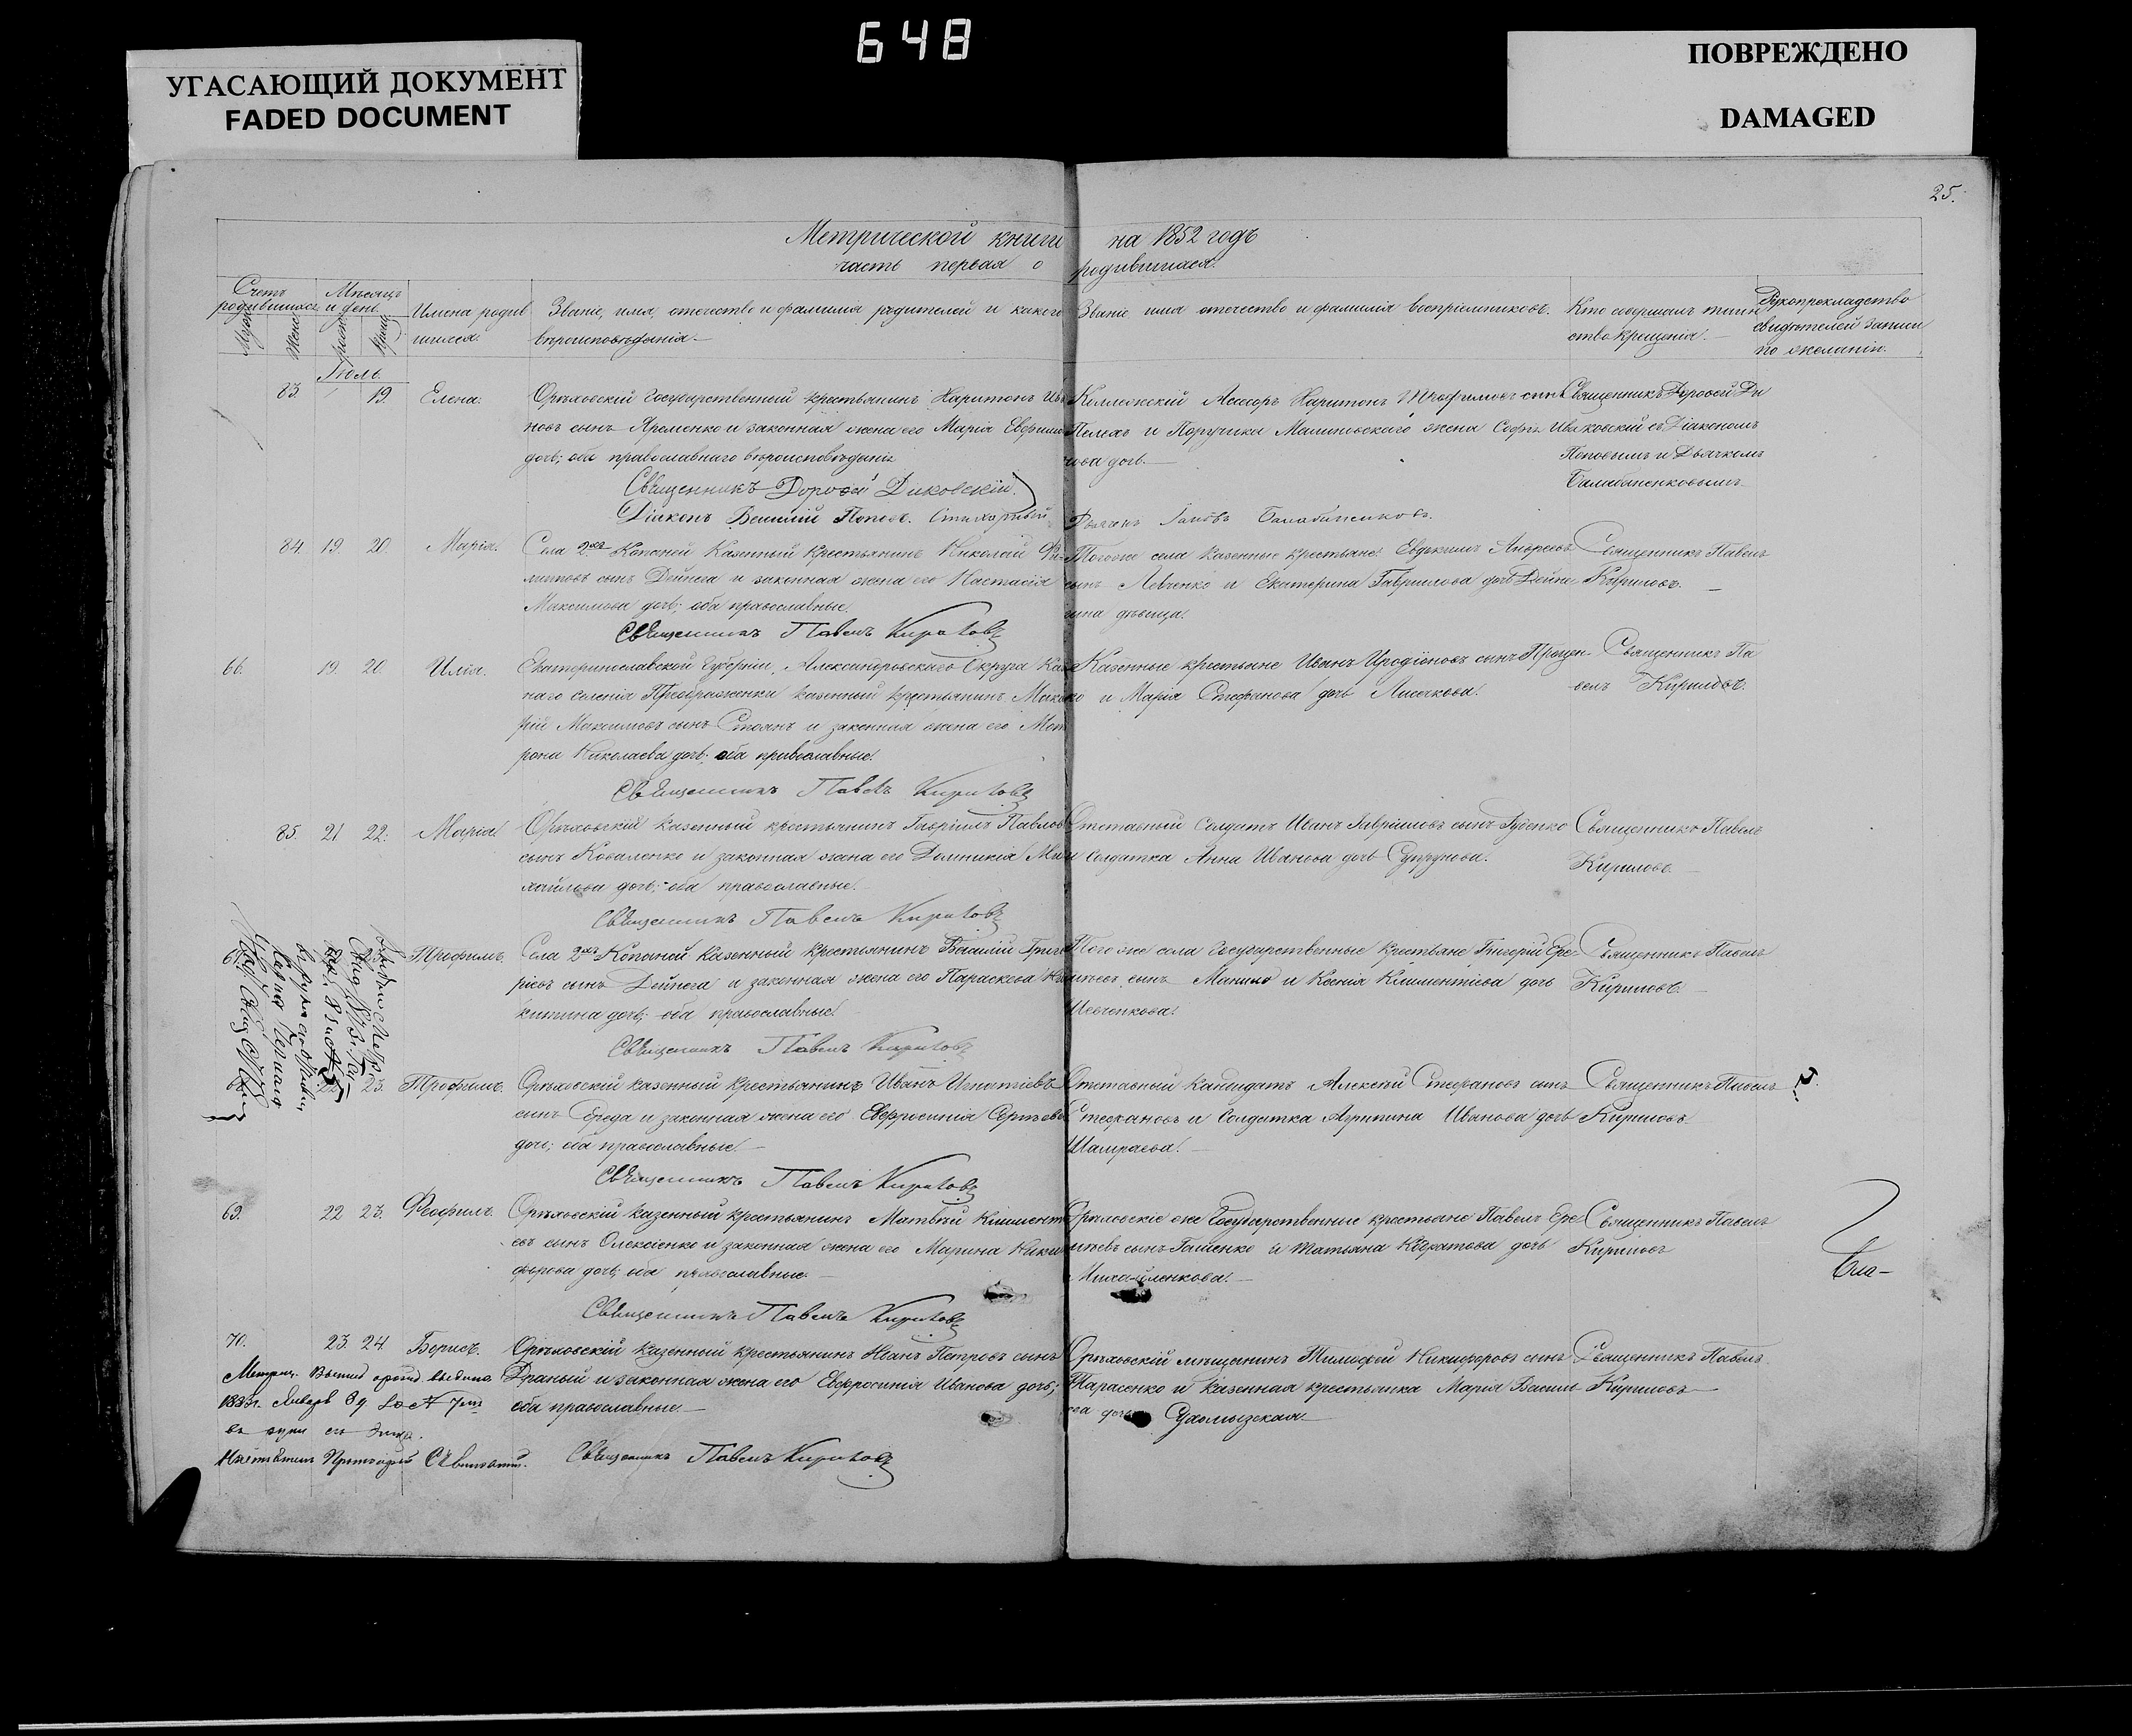 648
УГАСАЮЩИЙ ДОКУМЕНТ
FADED DOCUMENT
ПОВРЕЖДЕНО
DAMAGED
25.
Метрической книги на 1852 годъ
часть первая о родившихся.
Счетъ родившихся
Мѣсяцъ и день
Имена родившихся.
Званіе, имя, отечество и фамилія родителей и какого вѣроисповѣданія.
Званіе имя отечество и фамилія воспріемниковъ.
Кто совершалъ таинство крещенія.
Рукоприкладство свидѣтелей записи по желанію.
Іюль.
83. 19. Елена.
Орѣховскій Государственный крестьянинъ Харитонъ Ива
новъ сынъ Яременко и законная жена его Марія Евфимо
дочь; оба православнаго вѣроисповѣданія
Коллежскій Ассесоръ Харитонъ сынъ
Пелехъ и Поручика Малиновскаго жена Софья
ова дочь.
Священникъ Дорофей Ди
ковскій съ Діакономъ
Поповымъ и Дьячкомъ
Балабаненковымъ.
Священникъ Дорофей Диковскій.
Діаконъ Василій Поповъ. Стихарный Дьячекъ Балабаненковъ.
84. 19. 20. Марія.
Села 2й Копаней Казенный крестьянинъ Николай Фи
липповъ сынъ Дейнега и законная жена его Настасія
Максимова дочь; оба православные.
Тогоже села казенные крестьяне: Евдокимъ Андреевъ
сынъ Левченко и Екатерина Гаврилова дочь Дейне
гина дѣвица.
Священникъ Павелъ
Кириловъ.
Священникъ Павелъ Кириловъ
66. 19. 20. Илія.
Екатеринославской Губерніи, Александровскаго Округа Казен
наго селенія Преображенки казенный крестьянинъ Мака
рій Максимовъ сынъ Стоянъ и законная жена его Мат
рона Николаева дочь; оба православные.
Казенные крестьяне Иванъ Иродіоновъ сынъ Процен
ко и Марія Стефанова дочь Лисичкова.
Священникъ Па
велъ Кириловъ.
Священникъ Павелъ Кириловъ
85. 21 22. Марія
Орѣховскій казенный крестьянинъ Гавріилъ Павловъ
сынъ Коваленко и законная жена его Домникія Ми
хайлова дочь; оба православные.
Отставный Солдатъ Иванъ Гавриловъ сынъ Руденко
и солдатка Анна Иванова дочь Супрунова.
Священникъ Павелъ
Кириловъ.
Священникъ Павелъ Кириловъ
Трофимъ.
Села 2й Копаней Казенный крестьянинъ Василій Григо
ріевъ сынъ Дейнега и законная жена его Параскева Ни
китина дочь; оба православные.
Того же села Государственные крестьяне Григорій Ере
мѣевъ сынъ и Ксенія Климентіева дочь
Шевченкова.
Священникъ Павелъ
Кириловъ.
Священникъ Павелъ Кириловъ
23. Трофимъ.
Орѣховскій казенный крестьянинъ Иванъ Игнатіевъ
сынъ Середа и законная жена его Евфросинія Сергѣева
дочь; оба православные.
Отставный Кандидатъ Алексѣй Стефановъ сынъ
Стефановъ и Солдатка Агрипина Иванова дочь
Шамраева.
Священникъ Павелъ
Кириловъ.
Священникъ Павелъ Кириловъ
69. 22 23. Феофилъ.
Орѣховскій казенный крестьянинъ Матвѣй Климент
евъ сынъ Олексіенко и законная жена его Марина Ники
форова дочь; оба православные.
Орѣховскіе же Государственные крестьяне Павелъ Ере
мѣевъ сынъ Гашенко и Татьяна дочь
Михайленкова.
Священникъ Павелъ
Кириловъ
Священникъ Павелъ Кириловъ
70. 23. 24. Борисъ.
Орѣховскій казенный крестьянинъ Иванъ Петровъ сынъ
Драный и законная жена его Евфросинія Иванова дочь;
оба православные.
Орѣховскій мѣщанинъ Тимофей Никифоровъ сынъ
Тарасенко и казенная крестьянка Марія Васили
ева дочь
Священникъ Павелъ
Кириловъ
Священникъ Павелъ Кириловъ